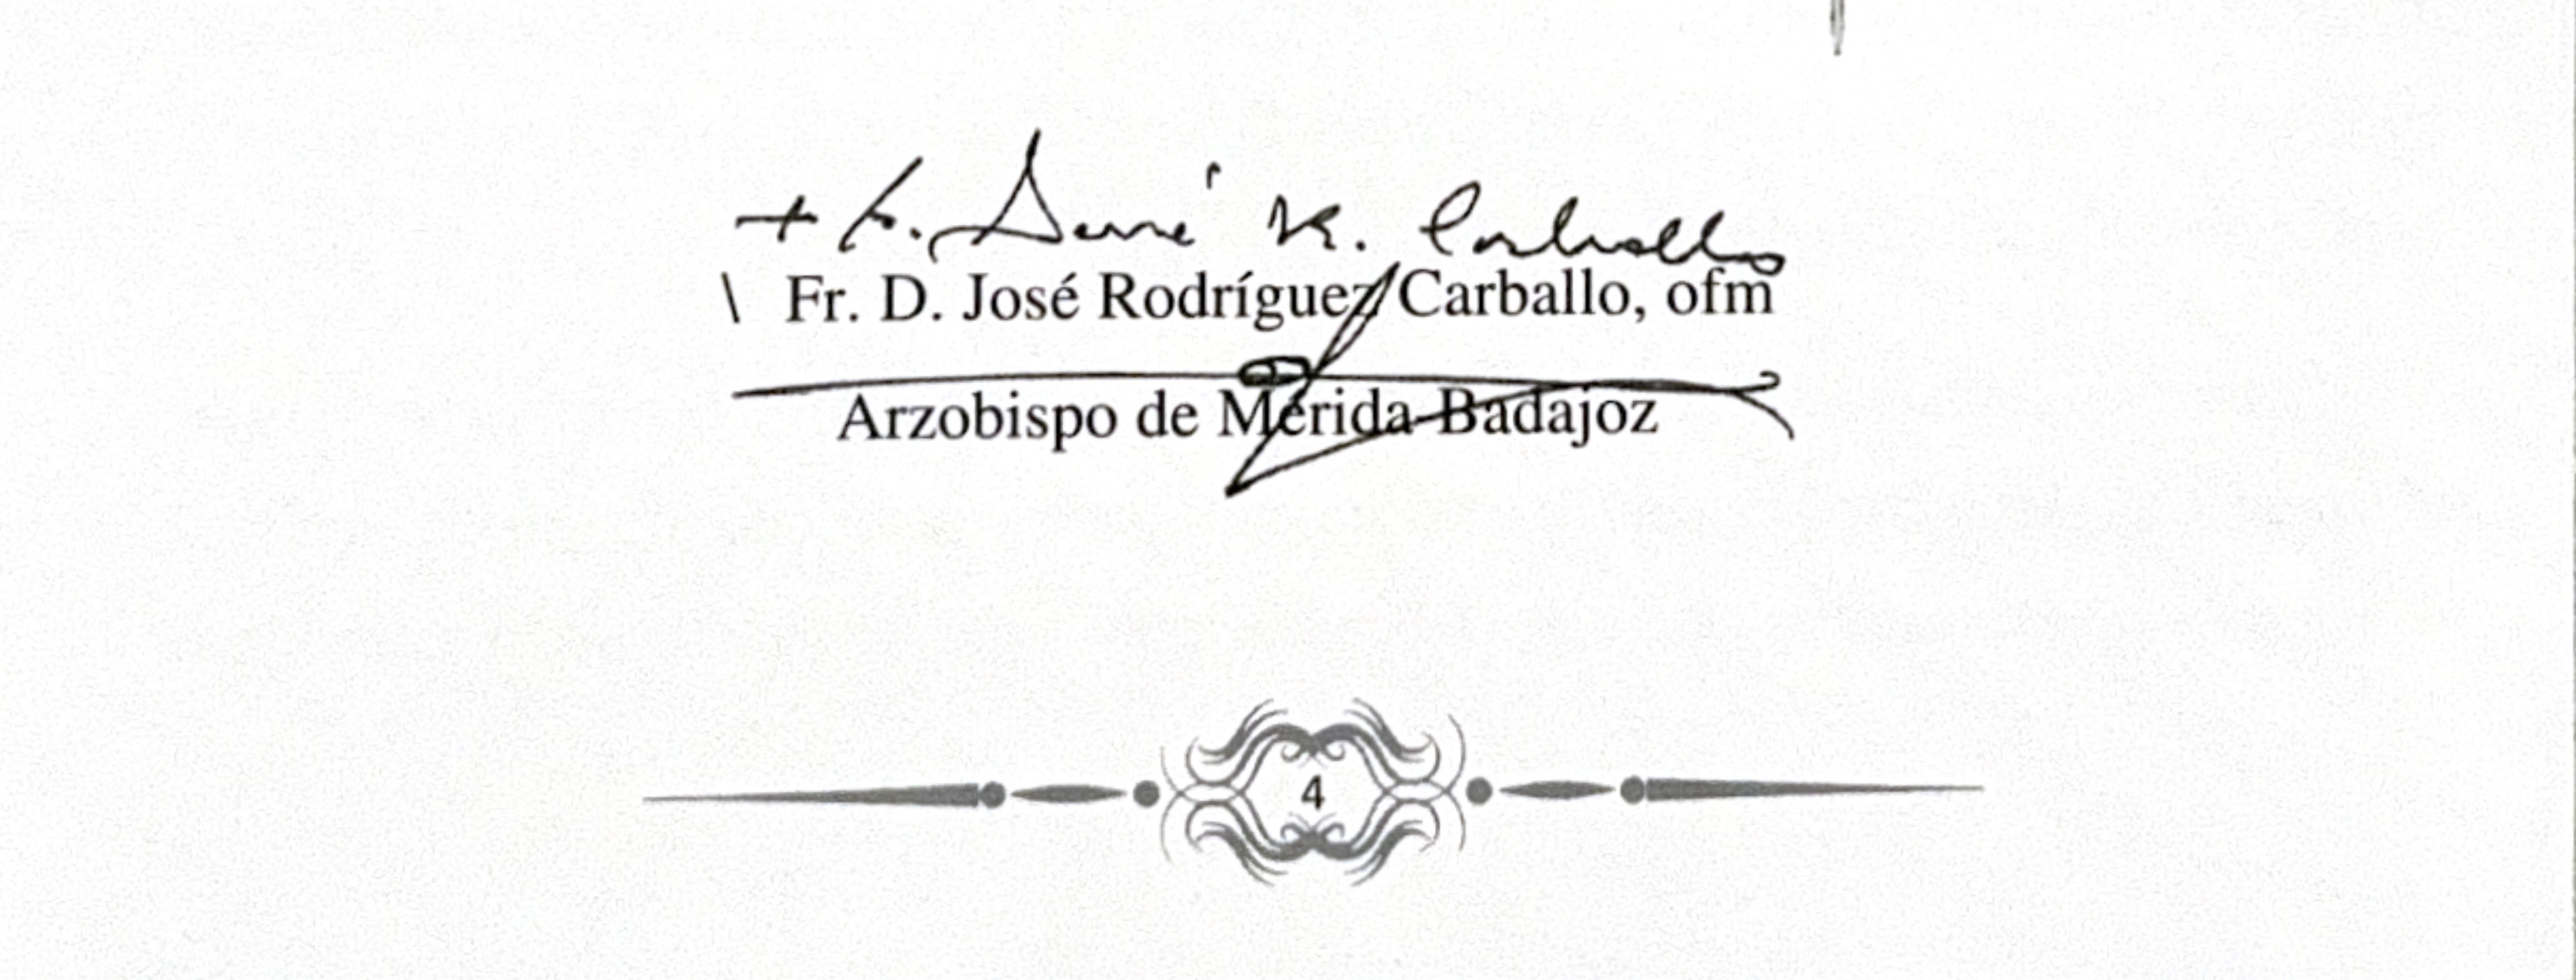 + Fr. José R. Carballo
Fr. D. José Rodríguez Carballo, ofm
Arzobispo de Mérida-Badajoz
4